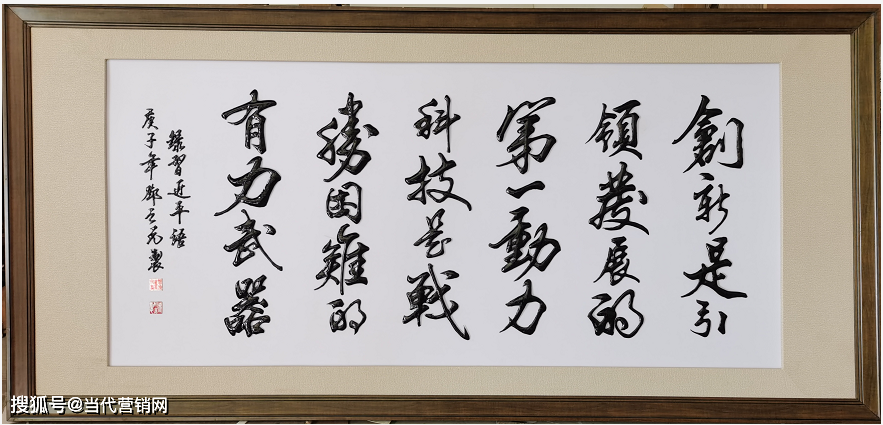 創新是引
領發展的
第一動力
科技是戰
勝困難的
有力武器
錄習近平語
庚子年製
搜狐号@当代营销网